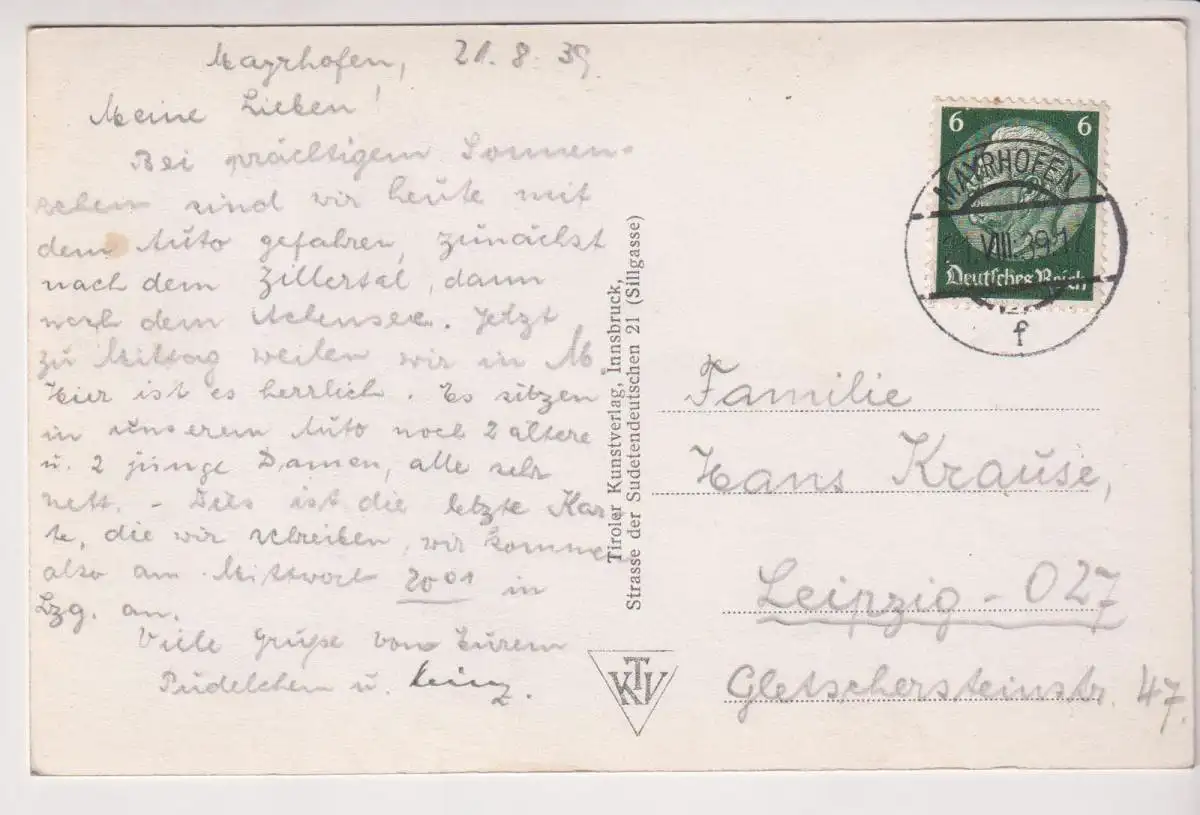 Mayrhofen, 21.8.39.
Meine Lieben!
Bei prächtigem Sonnen-
schein sind wir heute mit
dem Auto gefahren, zunächst
nach dem Zillertal, dann
nach dem Achensee. Jetzt
zu Mittag weilen wir in M.
Hier ist es herrlich. Es sitzen
in unserem Auto noch 2 ältere
u. 2 junge Damen, alle sehr
nett. - Dies ist die letzte Kar-
te, die wir schreiben, wir kommen
also am Mittwoch 20⁰¹ in
Lzg. an.
Viele Grüße von Eurem
Pudelchen u. Heinz.
Tiroler Kunstverlag, Innsbruck,
Strasse der Sudetendeutschen 21 (Sillgasse)
KTV
6 6
Deutsches Reich
MAYRHOFEN
VIII.39.
f
Familie
Hans Krause,
Leipzig-O27
Gletschersteinstr. 47.